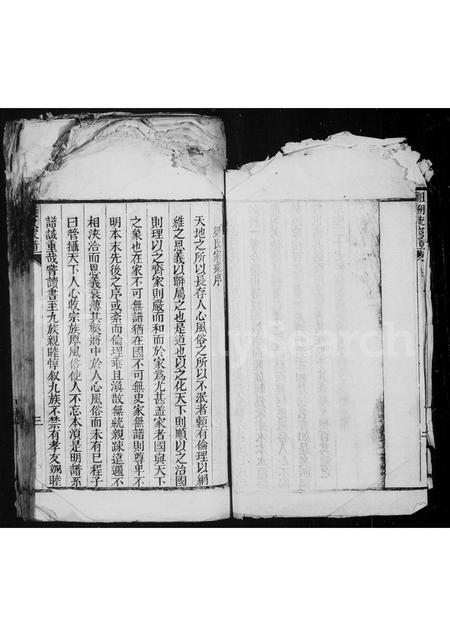 氏家乘序
天地之所以長存人心風俗之所以不泯者賴有倫理以綱
維之恩義以聯屬之也是道也以之化天下則順以之治國
則理以之齊家則嚴而和而於家爲尤甚蓋家者國與天下
之象也在家不可無譜猶在國不可無史家無譜則尊卑不
明本末先後之序或紊而倫理乖且渙散無統親疎遠邇不
相浹洽而恩義衰薄其弊將中於人心風俗而未有已程子
曰管攝天下人心收宗族厚風俗使人不忘本須是明譜系
譜誠重哉嘗讀書至九族親睦惇敘九族不禁有孝友婣睦
三